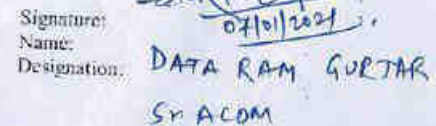 Signature:
07/01/2021
Name:
Designation: DATA RAM GURJAR
Sr ACDM